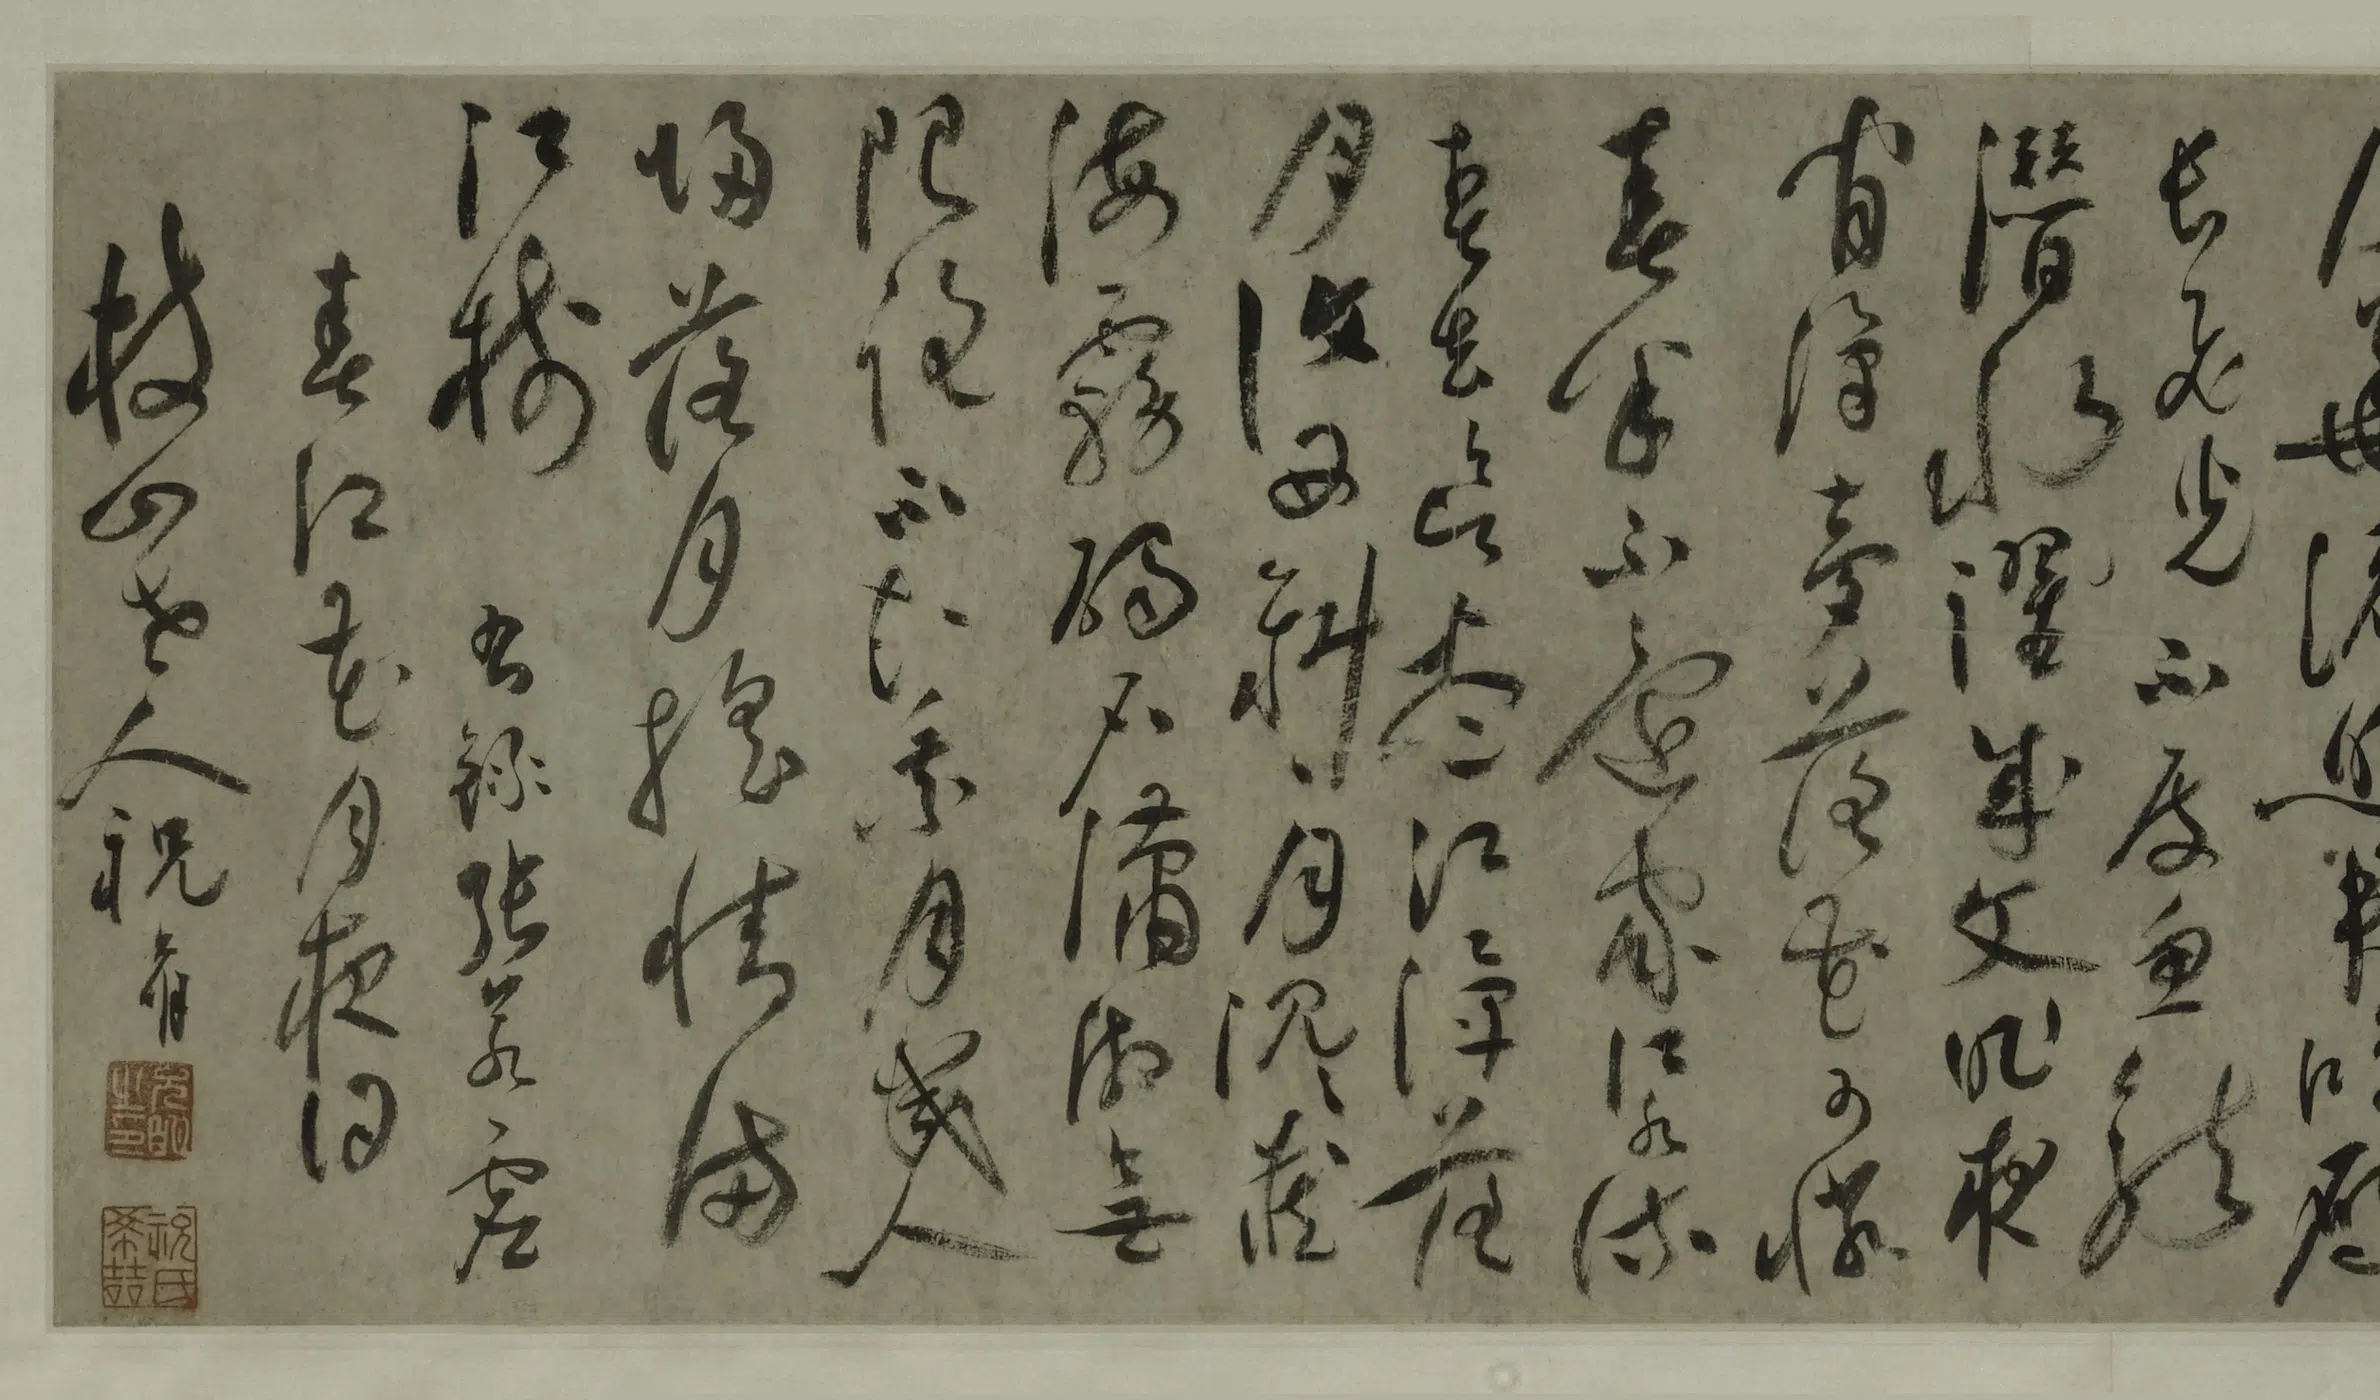 華流照君鴻雁
長飛光不度魚龍
潛水躍成文昨夜
閒潭夢落花可憐
春半不還家江水流
春去欲盡江潭落
月復西斜〻月沉〻藏
海霧碣石瀟湘無
限路不知乘月幾人
歸落月搖情滿
江樹 右錄張若虛
春江花月夜詞
枝山老人祝允明
允明之印
祝氏希喆